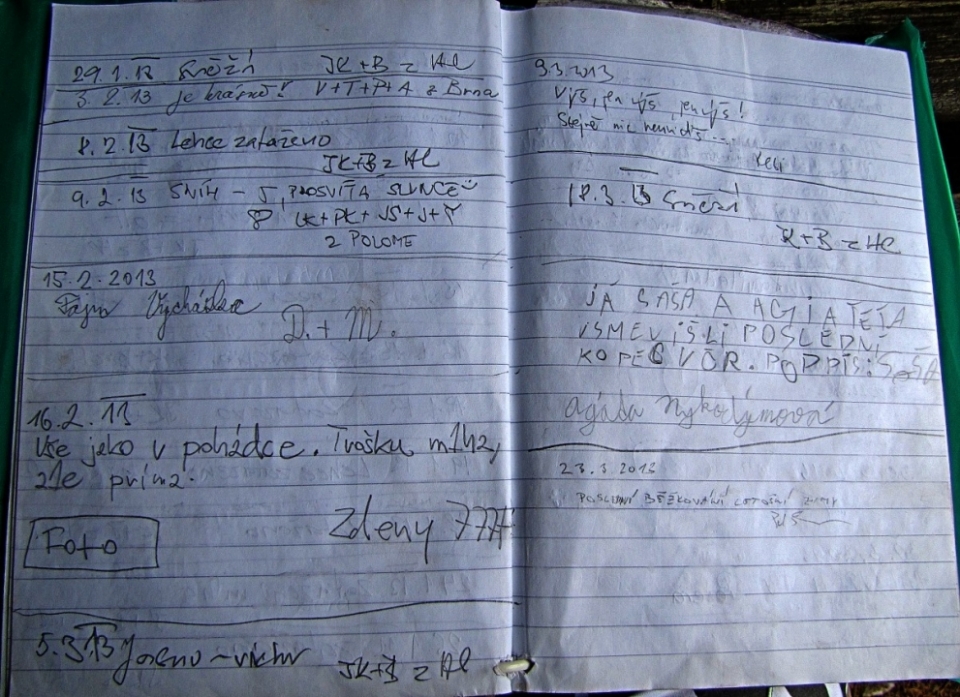 29.1.13 Sněží JK+B z HL
3.2.13 je krásně! V+T+P+A z Brna
8.2.13 Lehce zataženo
JK+B z HL
9.2.13 SNÍH – 5, PROSVÍTÁ SLUNCE
LK+PK+JS+J+
Z POLOME
15.2.2013
Fajn Vycházka
D.+M.
16.2.13
Vše jako v pohádce. Trošku mlhz,
ale príma.
Zdeny
Foto
5.3.13 Jasno – vichr JK+B z HL
9.3.2013
Výš, jen výš, jen výš!
Stejně nic nevidíš....
18.3.13 Sněží
K+B z HL
JÁ SÁŠA A AGI A TETA
VSME VIŠLI POSLEDNÍ
KOPEC VÓR. PODPIS: SáŠA
agáta Nykodýmová
23.3.2013
POSLEDNÍ BĚŽKOVÁNÍ LETOŠNÍ ZIMY